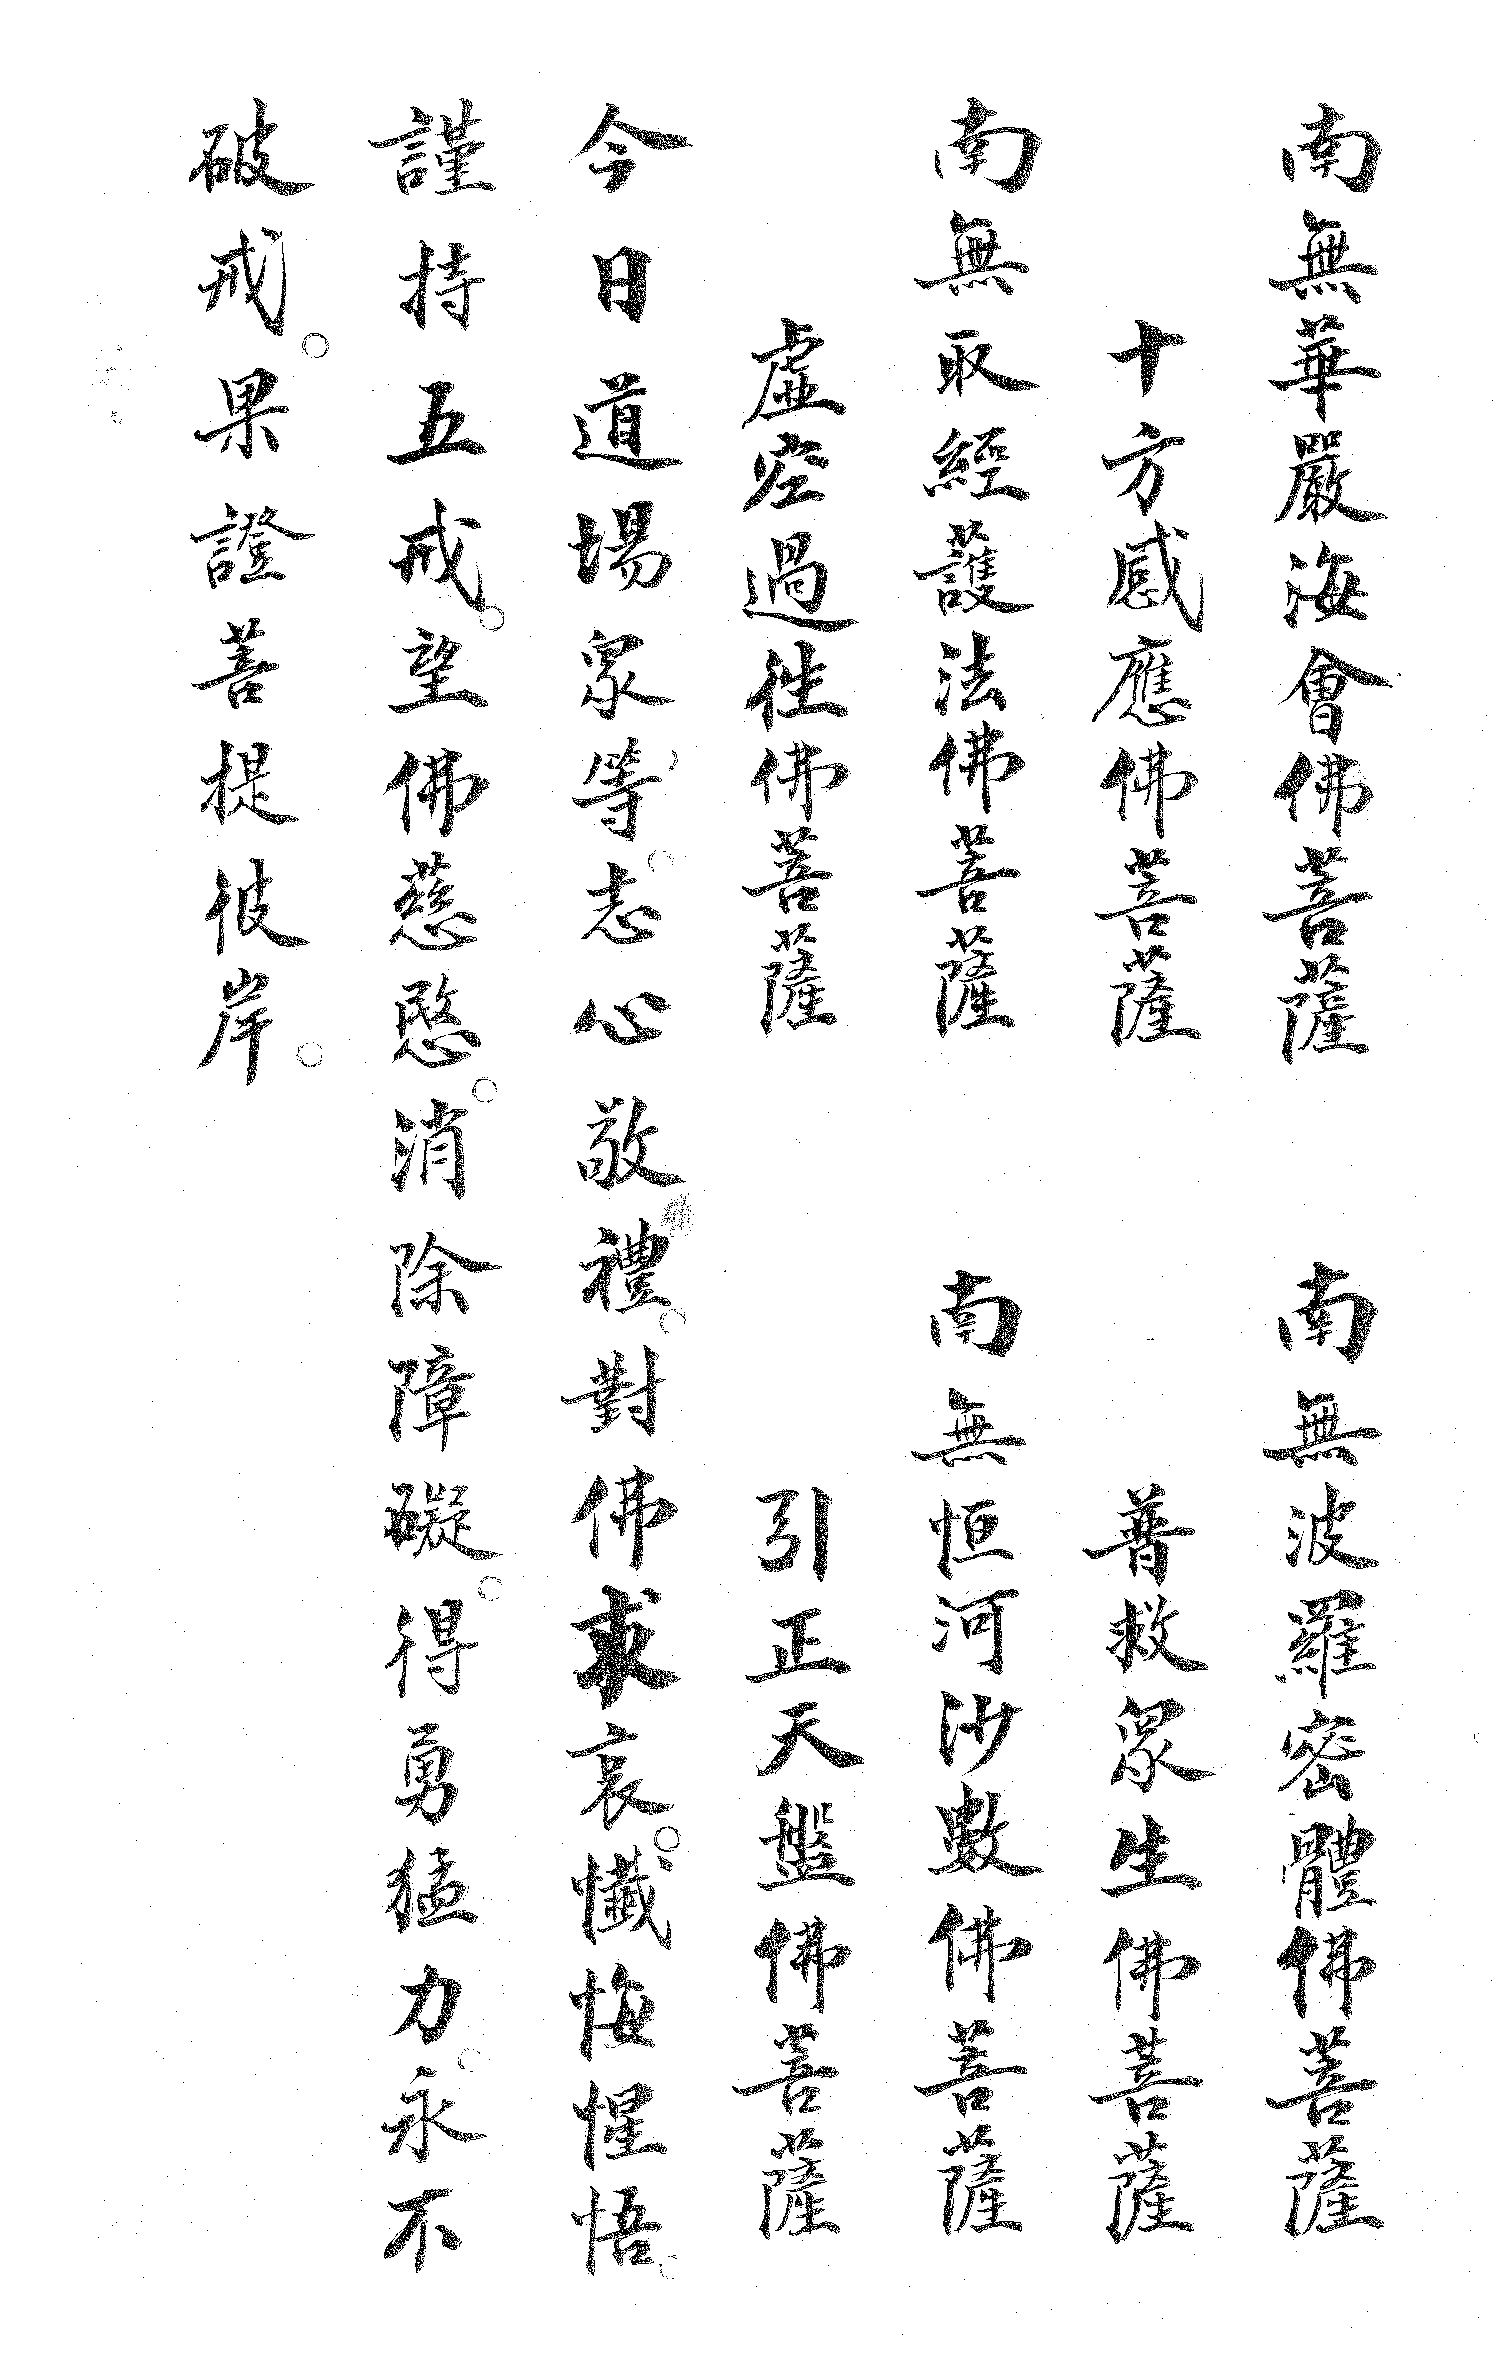 南無華嚴海會佛菩薩
南無波羅密體佛菩薩
十方感應佛菩薩
普救眾生佛菩薩
南無取經護法佛菩薩
南無恒河沙數佛菩薩
虛空過往佛菩薩
引正天盤佛菩薩
今日道場眾等。志心敬禮。對佛求哀。懺悔惺悟。
謹持五戒。望佛慈愍。消除障礙。得勇猛力。永不
破戒。果證菩提彼岸。